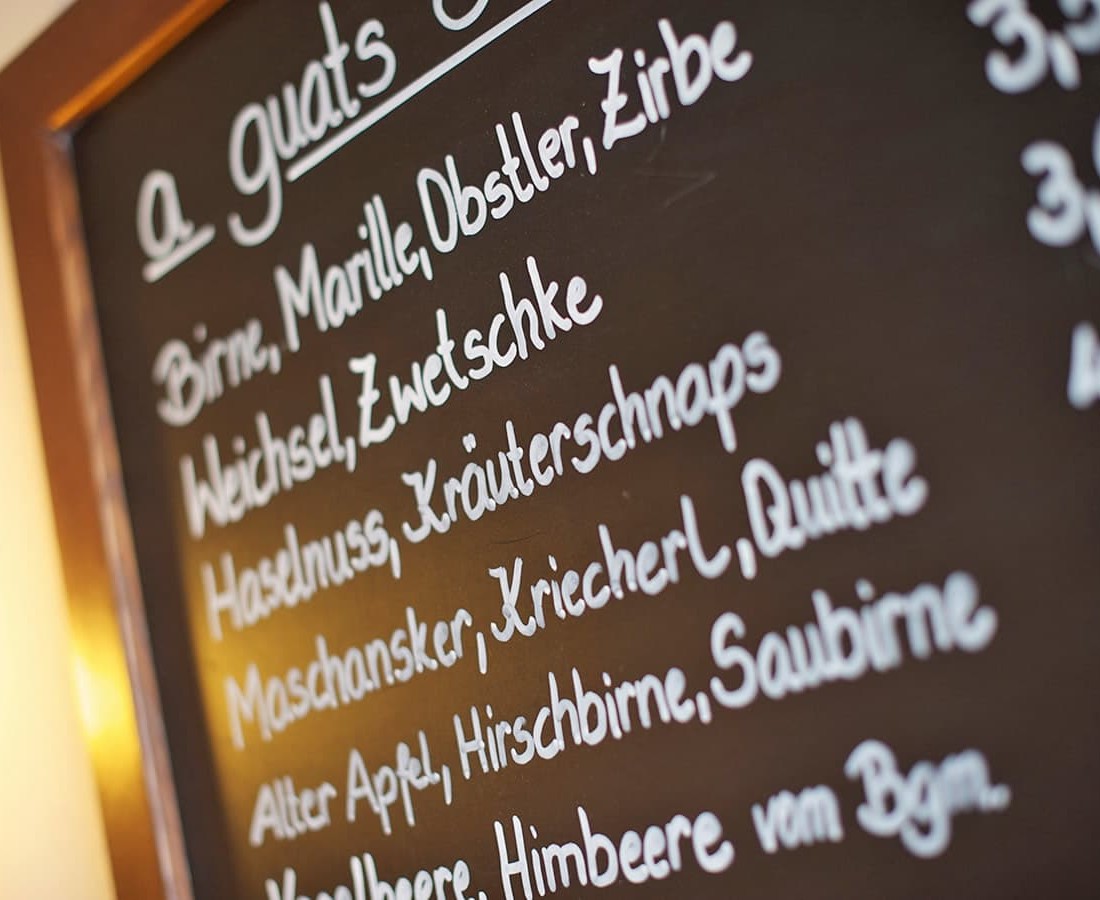 a guats
Birne, Marille, Obstler, Zirbe
Weichsel, Zwetschke
Haselnuss, Kräuterschnaps
Maschansker, Kriecherl, Quitte
Alter Apfel, Hirschbirne, Saubirne
Vogelbeere, Himbeere vom Bgm.